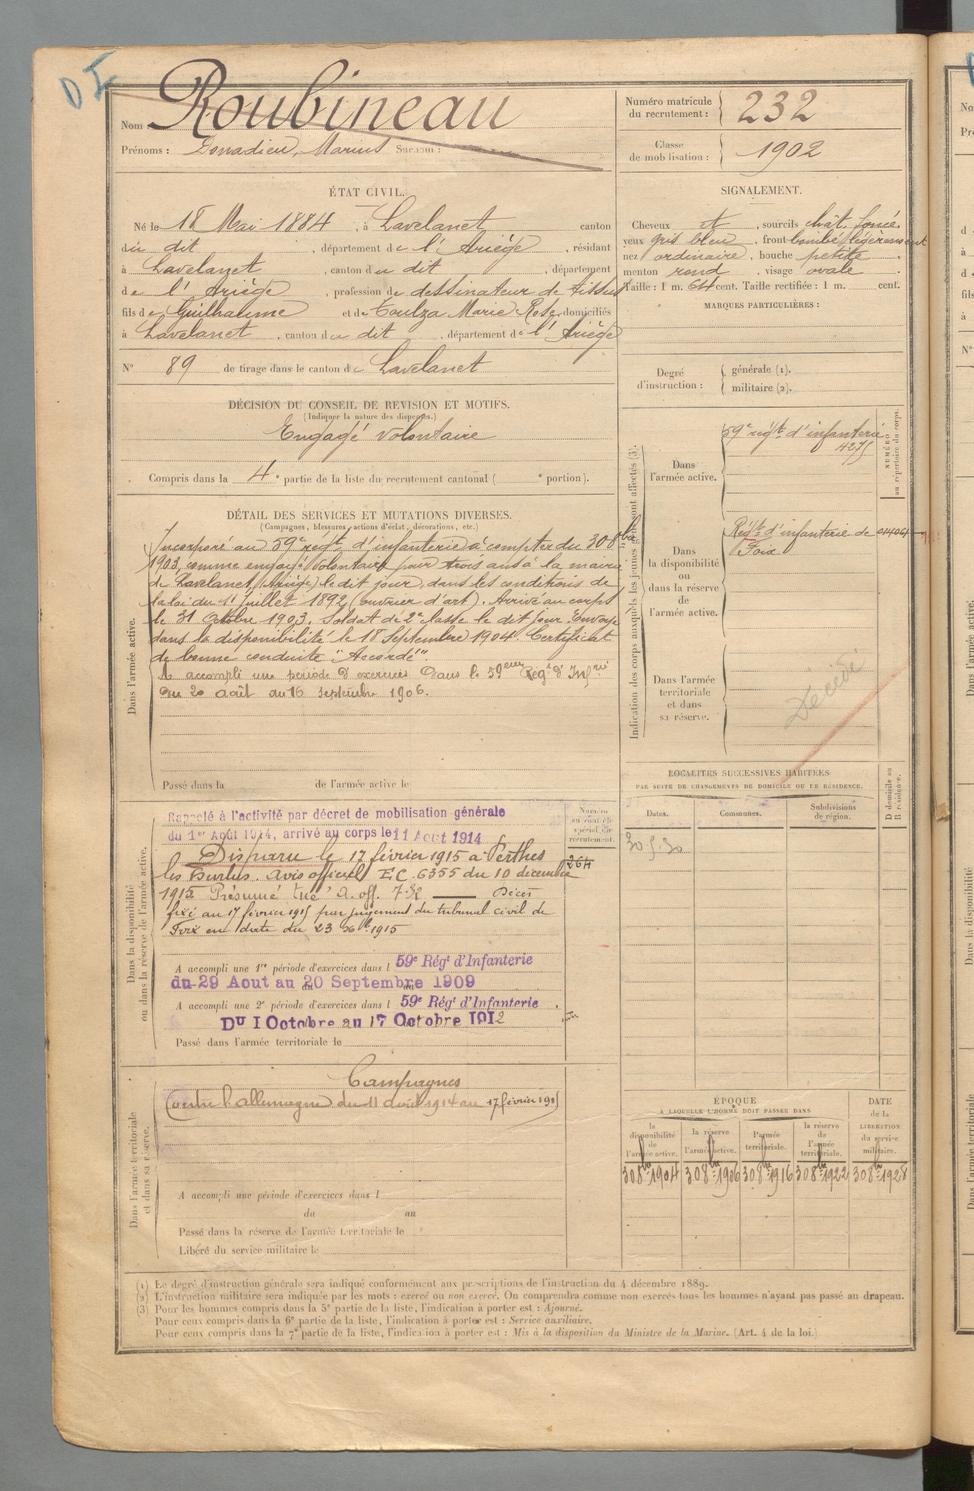 DI
Nom Roubineau
Prénoms : Donadieu, Marius Surnom :
Numéro matricule du recrutement : 232
Classe de mobilisation : 1902
ÉTAT CIVIL.
Né le 18 Mai 1884, à Lavelanet canton
du dit, département de l'Ariège, résidant
à Lavelanet, canton du dit, département
de l'Ariège, profession de dessinateur de tissus
fils de Guilhaume et de Toulza Marie Rose, domiciliés
à Lavelanet, canton du dit, département de l'Ariège
N° 89 de tirage dans le canton de Lavelanet
SIGNALEMENT.
Cheveux et, sourcils chât. foncé.
yeux gris bleu, front bombé légèrement
nez ordinaire, bouche petite
menton rond, visage ovale
Taille : 1 m. 64 cent. Taille rectifiée : 1 m. cent.
MARQUES PARTICULIÈRES :
Degré d'instruction : générale (1).
militaire (2).
DÉCISION DU CONSEIL DE REVISION ET MOTIFS.
(Indiquer la nature des dispenses.)
Engagé volontaire
Compris dans la 4e partie de la liste du recrutement cantonal ( e portion).
DÉTAIL DES SERVICES ET MUTATIONS DIVERSES.
(Campagnes, blessures, actions d'éclat, décorations, etc.)
Dans l'armée active.
Incorporé au 59e régt d'infanterie à compter du 30 8bre
1903, comme engagé volontaire pour trois ans à la mairie
de Lavelanet (Ariège) le dit jour, dans les conditions de
la loi du 11 juillet 1892 (ouvrier d'art). Arrivé au corps
le 31 Octobre 1903. Soldat de 2e classe le dit jour. Envoyé
dans la disponibilité le 18 Septembre 1904. Certificat
de bonne conduite "Accordé".
A accompli une période d'exercices dans le 59eme Régt d'Infrie
du 20 août au 16 septembre 1906.
Passé dans la de l'armée active le
Indication des corps auxquels les jeunes sont affectés (3).
NUMÉRO au répertoire du corps.
Dans l'armée active.
59e régt d'infanterie
4275
Dans la disponibilité ou dans la réserve de l'armée active.
Régt d'infanterie de
Foix
Dans l'armée territoriale et dans sa réserve.
Décédé
Dans la disponibilité ou dans la réserve de l'armée active.
Rappelé à l'activité par décret de mobilisation générale
du 1er Août 1914, arrivé au corps le 11 Aout 1914
Disparu le 17 février 1915 à Perthes
les Hurlus. Avis officiel E.C. 6355 du 10 décembre
1915 Présumé tué A. off. Décès
fixé au 17 février 1915 par jugement du tribunal civil de
Foix en date du 23 Xbre 1915
Numéro au contrôle spécial de recrutement.
264
A accompli une 1re période d'exercices dans l 59e Régt d'Infanterie
du 29 Aout au 20 Septembre 1909
A accompli une 2e période d'exercices dans l 59e Régt d'Infanterie.
Du 1 Octobre au 17 Octobre 1912
Passé dans l'armée territoriale le
LOCALITÉS SUCCESSIVES HABITÉES
PAR SUITE DE CHANGEMENTS DE DOMICILE OU DE RÉSIDENCE.
Dates. Communes. Subdivisions de région. D domicile ou R résidence.
Dans l'armée territoriale et dans sa réserve.
Campagnes
Contre l'allemagne du 11 août 1914 au 17 février 1915
A accompli une période d'exercices dans l
du au
Passé dans la réserve de l'armée territoriale le
Libéré du service militaire le
ÉPOQUE
À LAQUELLE L'HOMME DOIT PASSER DANS
DATE de la LIBÉRATION du service militaire.
la disponibilité de l'armée active. la réserve de l'armée active. l'armée territoriale. la réserve de l'armée territoriale.
30 8bre 1904 30 8bre 1906 30 8bre 1916 30 8bre 1922 30 8bre 1928
(1) Le degré d'instruction générale sera indiqué conformément aux prescriptions de l'instruction du 4 décembre 1889.
(2) L'instruction militaire sera indiquée par les mots : exercé ou non exercé. On comprendra comme non exercés tous les hommes n'ayant pas passé au drapeau.
(3) Pour les hommes compris dans la 5e partie de la liste, l'indication à porter est : Ajourné.
Pour ceux compris dans la 6e partie de la liste, l'indication à porter est : Service auxiliaire.
Pour ceux compris dans la 7e partie de la liste, l'indication à porter est : Mis à la disposition du Ministre de la Marine. (Art. 4 de la loi.)